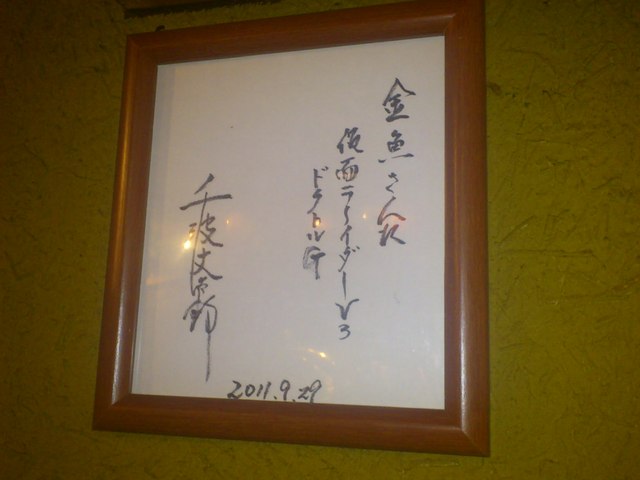 金魚さん江
仮面ライダーV3
ドクトルG
千波丈太郎
2011.9.29